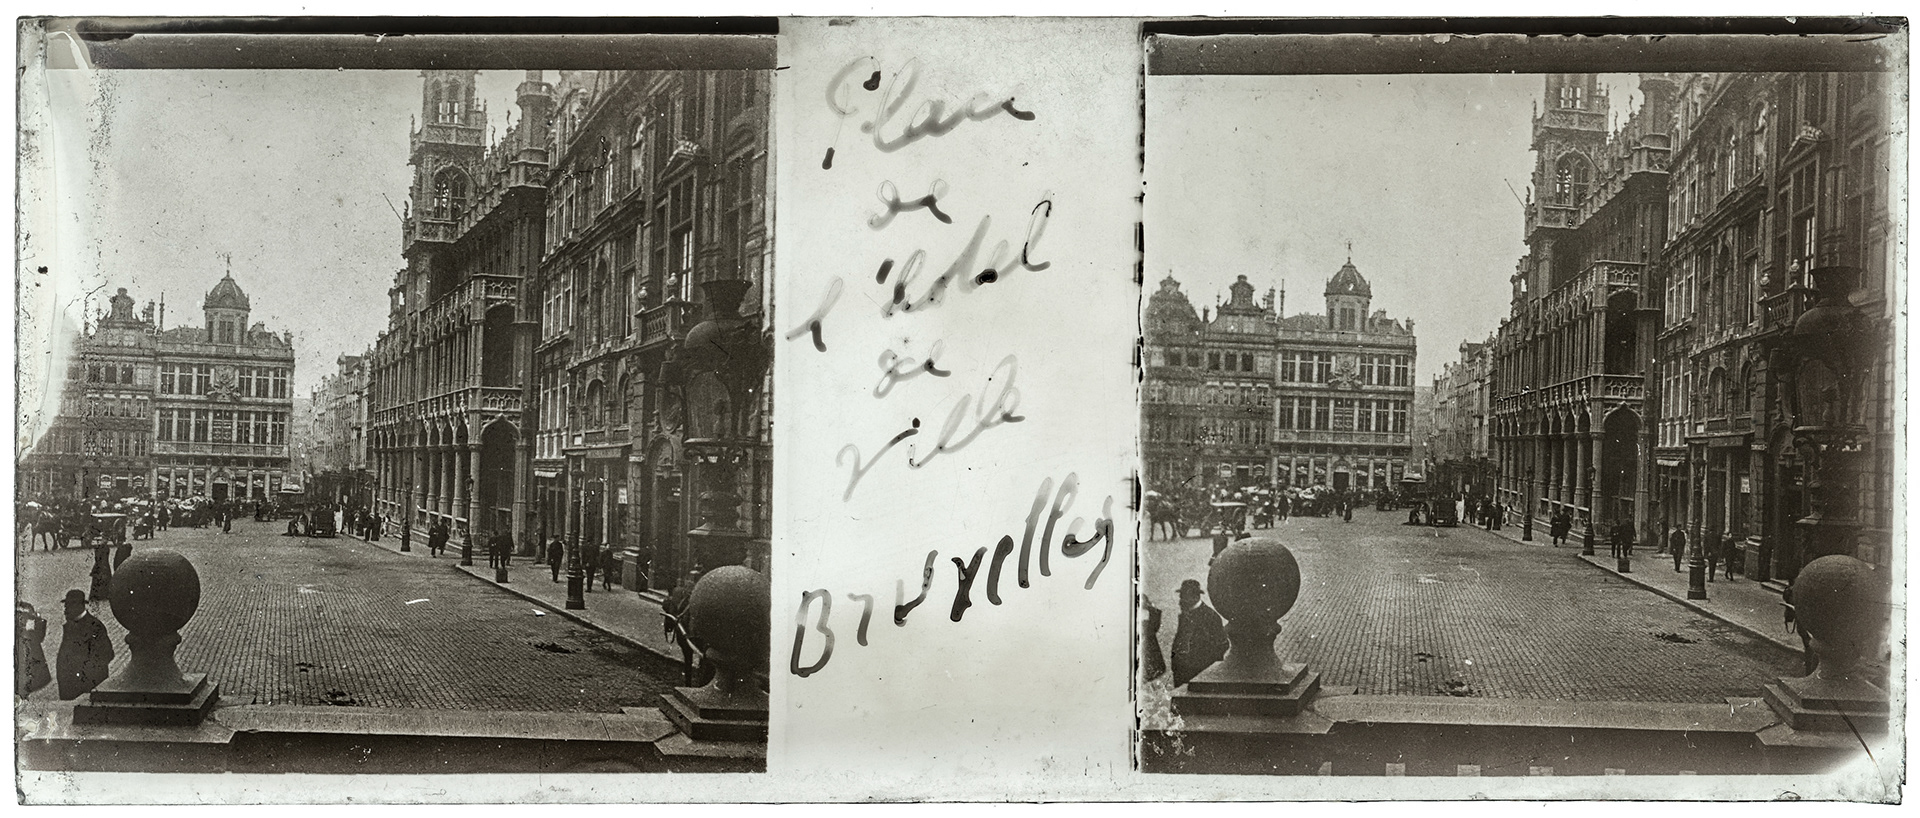 Place
de
l'hotel
de
ville
Bruxelles